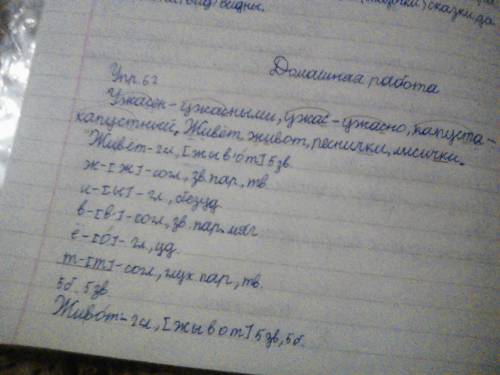 сказки, да
видны.
Домашняя работа
Упр. 62
Ужасен - ужасными, ужас - ужасно, капуста -
капустный. Живёт живот, реснички, лисички.
Живёт - гл, [жыв'от] 5 зв.
ж - [ж] - согл, зв. пар, тв.
и - [ы] - гл, безуд.
в - [в'] - согл, зв. пар. мяг
ё - [о́] - гл, уд.
т - [т] - согл, глух пар, тв.
5 б. 5 зв
Живо́т - гл, [жывот] 5 зв, 5 б.